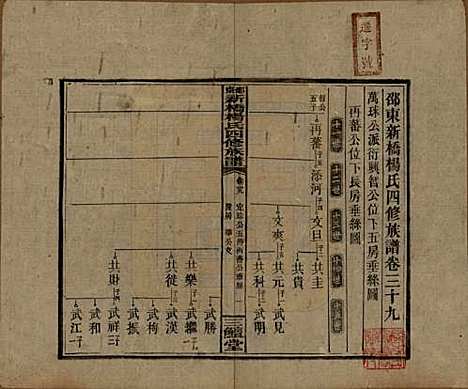 邵東新橋楊氏四修族譜卷三十九
萬珠公派衍興智公位下五房垂絲圖
再蕃公位下長房垂絲圖
智公五子
再蕃
添河
文日
共主
共貴
文爽
共元
武見
共科
武明
邵東新橋楊氏四修族譜
三鱣堂
武勝
共樂
武繼
共從
武漢
武梅
武振
共財
武祥
武和
武江